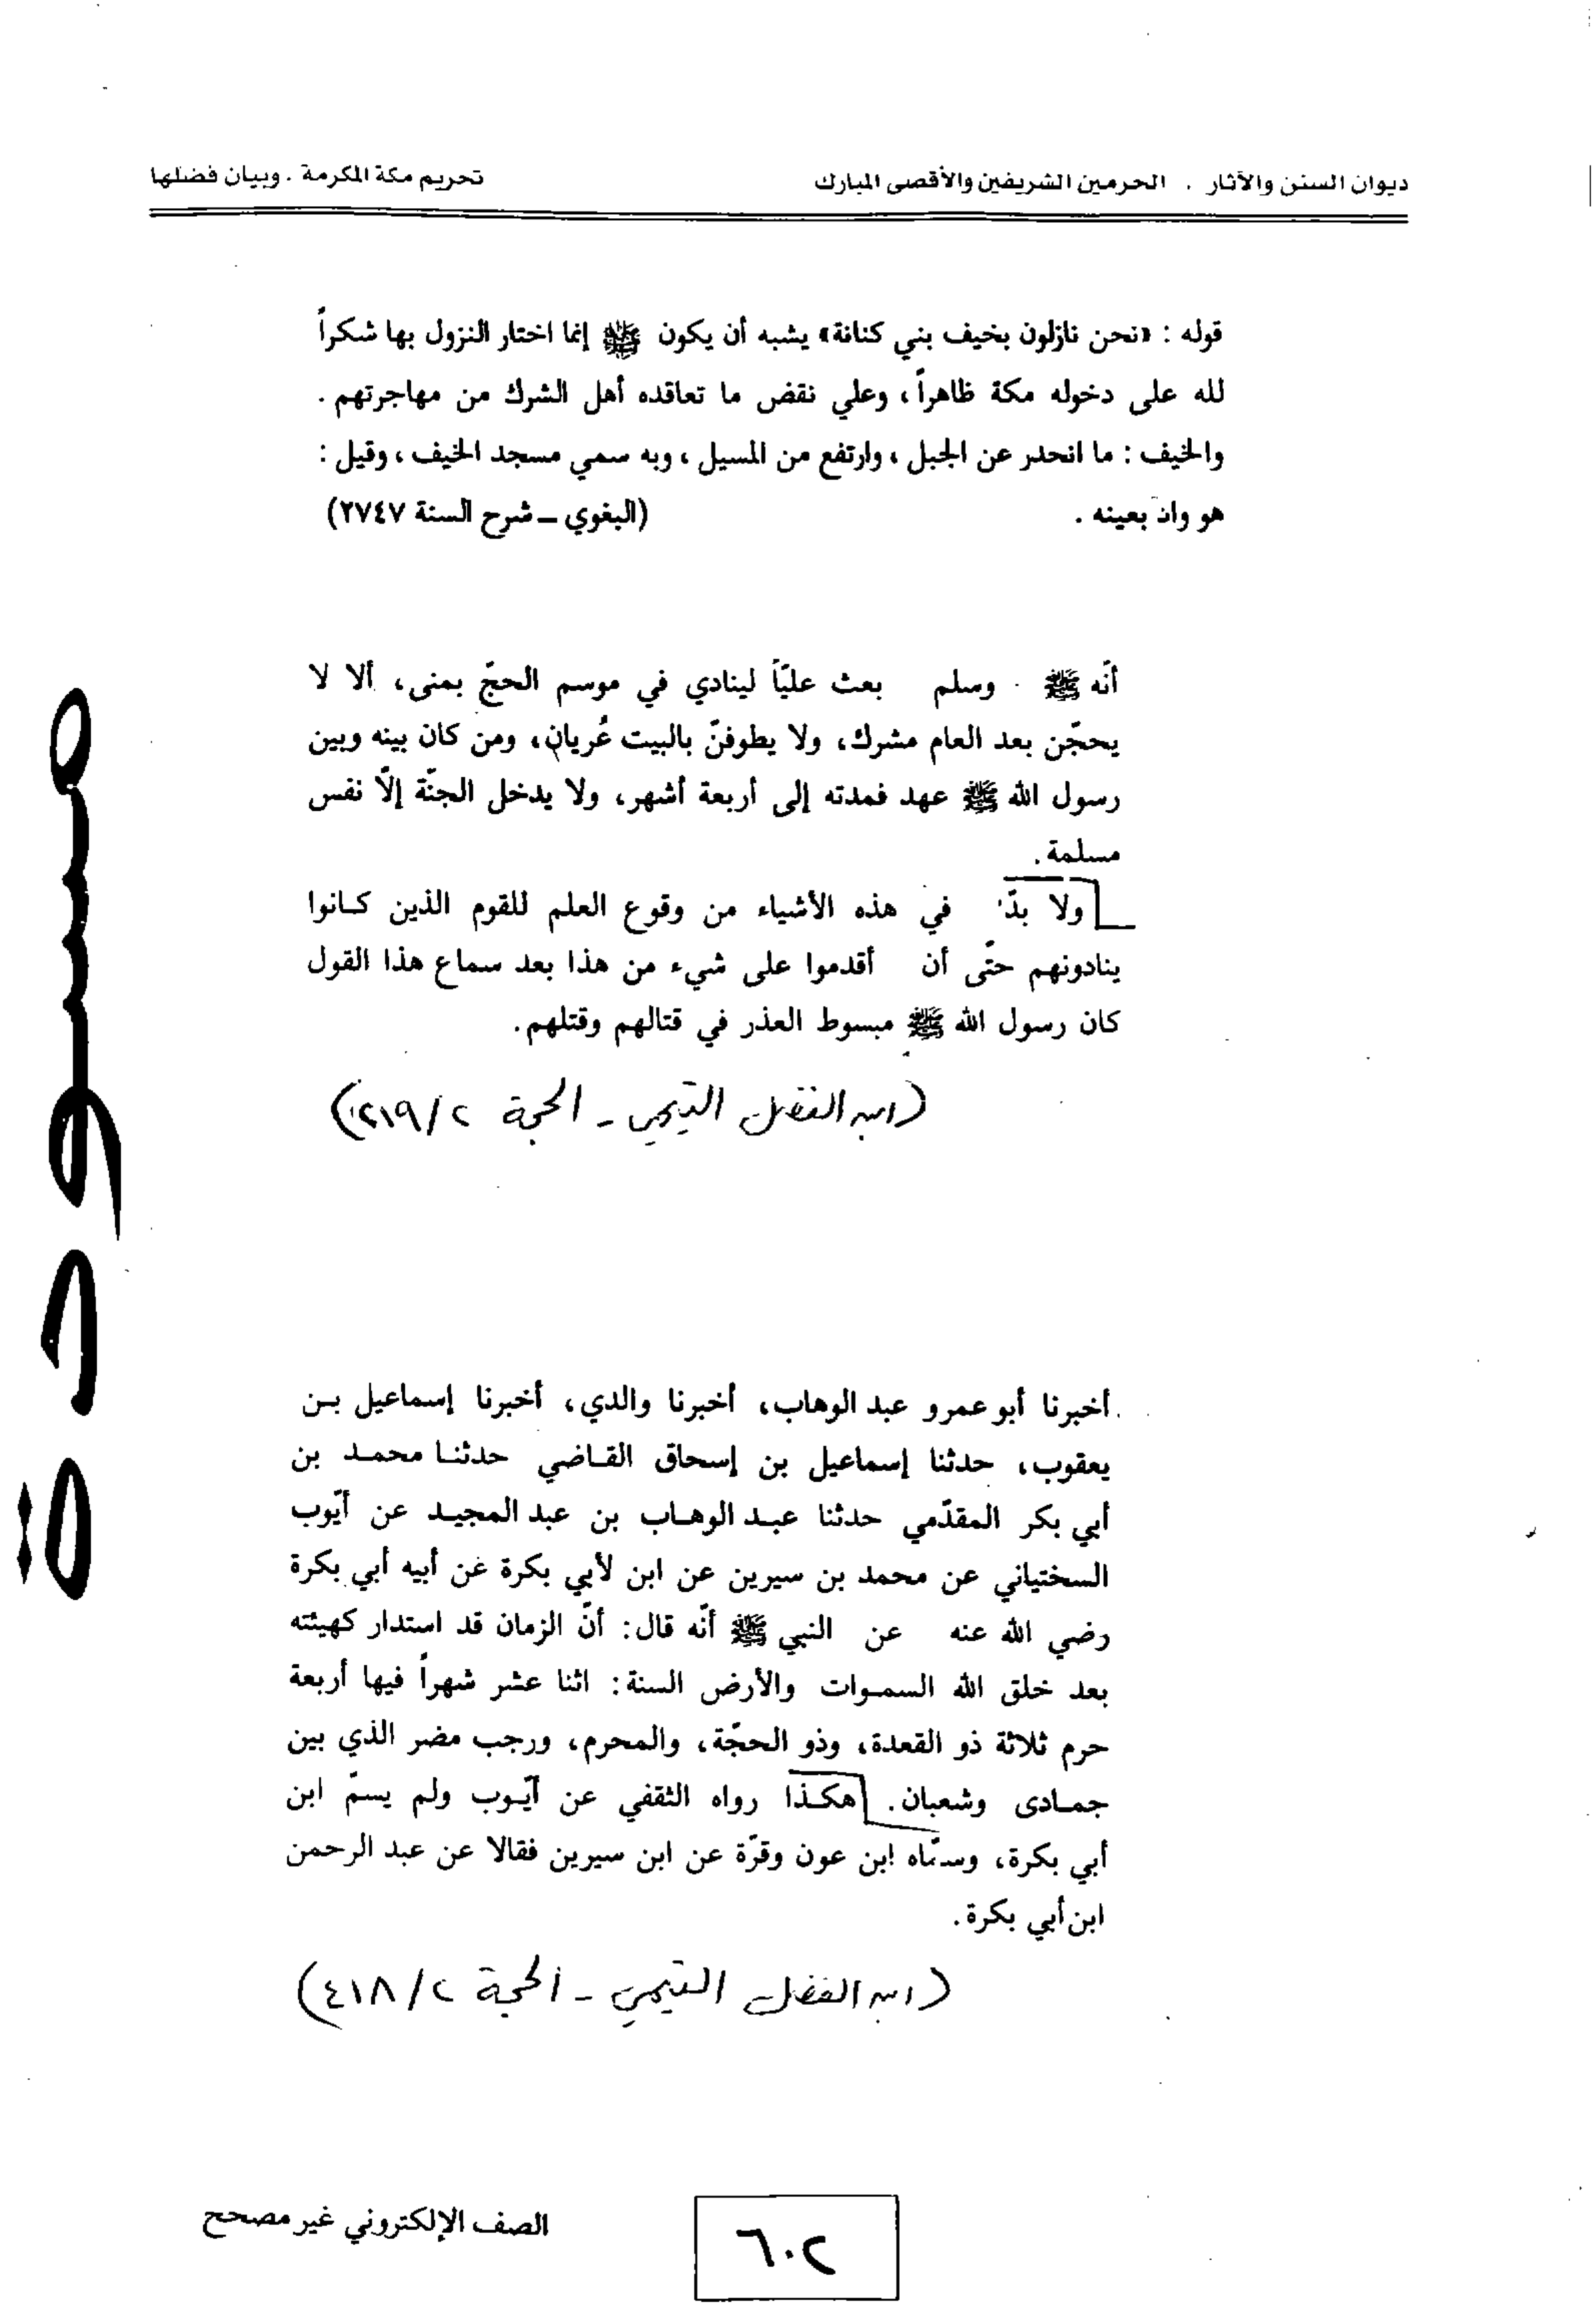 ديوان السنن والآثار . الحرمين الشريفين والأقصى المبارك
تحريم مكة المكرمة . وبيان فضلها
قوله : «نحن نازلون بخيف بني كنانة» يشبه أن يكون ﷺ إنما اختار النزول بها شكراً
لله على دخوله مكة ظاهراً ، وعلي نقض ما تعاقده أهل الشرك من مهاجرتهم .
والخيف : ما انحدر عن الجبل ، وارتفع من المسيل ، وبه سمي مسجد الخيف ، وقيل :
هو واد بعينه . (البغوي – شرح السنة ٢٧٤٧)
أنّه ﷺ وسلم بعث عليّاً لينادي في موسم الحجّ بمنى، ألا لا
يحجّن بعد العام مشرك، ولا يطوفنّ بالبيت عُريان، ومن كان بينه وبين
رسول الله ﷺ عهد فمدته إلى أربعة أشهر، ولا يدخل الجنّة إلّا نفس
مسلمة.
ولا بدّ في هذه الأشياء من وقوع العلم للقوم الذين كانوا
ينادونهم حتّى أن أقدموا على شيء من هذا بعد سماع هذا القول
كان رسول الله ﷺ مبسوط العذر في قتالهم وقتلهم.
(ابن الفضل التيمي - الحجة ٢/
أخبرنا أبو عمرو عبد الوهاب، أخبرنا والدي، أخبرنا إسماعيل بن
يعقوب، حدثنا إسماعيل بن إسحاق القاضي حدثنا محمد بن
أبي بكر المقدّمي حدثنا عبد الوهاب بن عبد المجيد عن أيّوب
السختياني عن محمد بن سيرين عن ابن لأبي بكرة عن أبيه أبي بكرة
رضي الله عنه عن النبي ﷺ أنّه قال: أنّ الزمان قد استدار كهيئته
بعد خلق الله السموات والأرض السنة: اثنا عشر شهراً فيها أربعة
حرم ثلاثة ذو القعدة، وذو الحجّة، والمحرم، ورجب مضر الذي بين
جمادى وشعبان. هكذا رواه الثقفي عن أيّوب ولم يسمّ ابن
أبي بكرة، وسمّاه ابن عون وقرّة عن ابن سيرين فقالا عن عبد الرحمن
ابن أبي بكرة.
(ابن الفضل التيمي - الحجة ٢/٤١٨)
مسودة
الصف الإلكتروني غير مصحح
٦٠٢